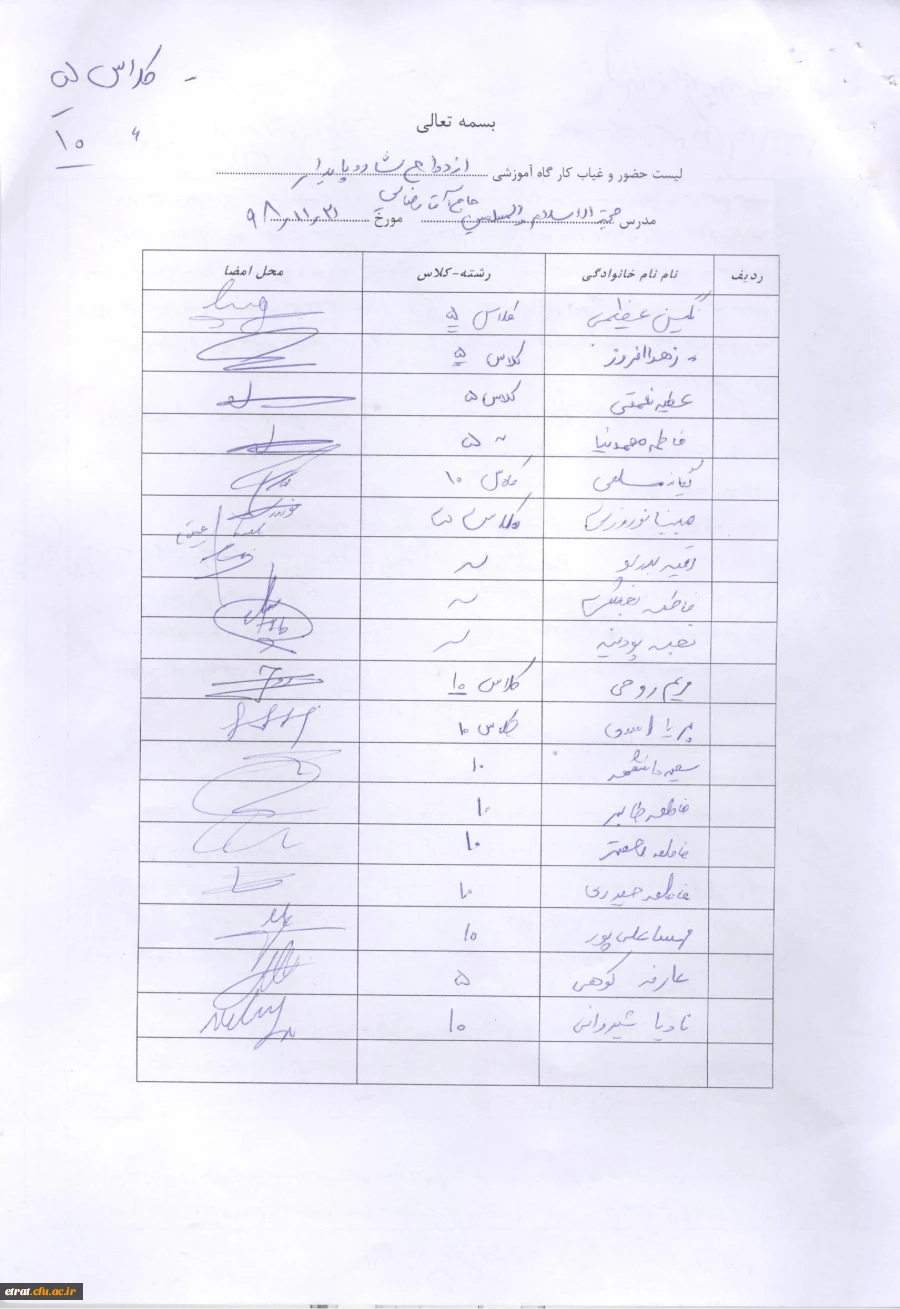 - کلاس ۵
" ۱۰
بسمه تعالی
لیست حضور و غیاب کار گاه آموزشی ازدواج شاد و پایدار
مدرس حجة الاسلام والمسلمین حاج آقا رضایی مورخ ۹۸/۱۱/۲۱
ردیف نام نام خانوادگی رشته-کلاس محل امضا
نگین عظیمی کلاس ۵
زهرا افروز کلاس ۵
عطیه نعمتی کلاس ۵
فاطمه محمدنیا ~ ۵
کلاس ۱۰
مبینا نوروزی کلاس ۵
~
فاطمه ~
پودینه ~
مریم روحی کلاس ۱۰
پریا اسدی کلاس ۱۰
۱۰
فاطمه طالبی ۱۰
فاطمه ۱۰
فاطمه حیدری ۱۰
مهسا علی پور ۱۰
عارفه کوهی ۵
نادیا شیروانی ۱۰
etrat.cfu.ac.ir